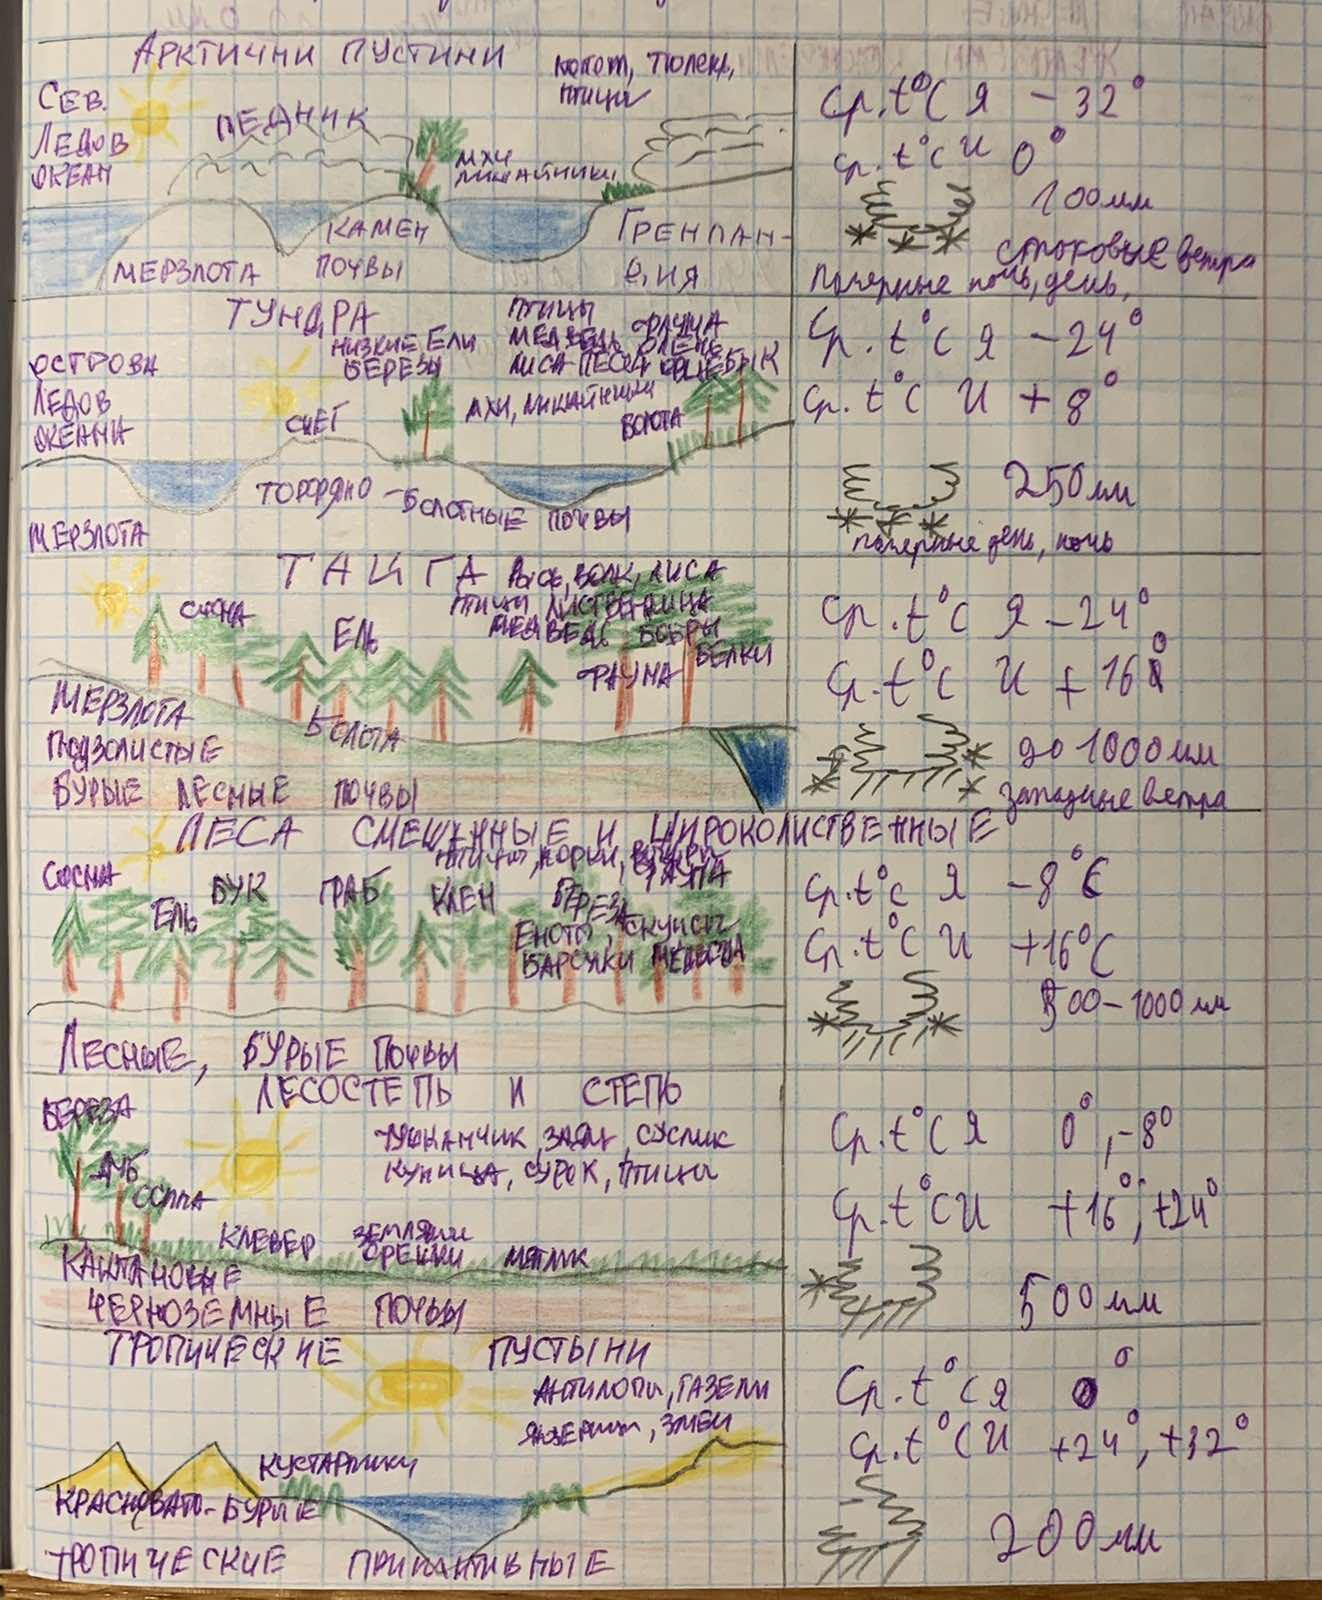 АРКТИЧНИ ПУСТИНИ
тюлени,
птицы
СЕВ.
ЛЕДОВ
ОКЕАН
ЛЕДНИК
МХИ
ЛИШАЙНИКИ
КАМЕН
ПОЧВЫ
МЕРЗЛОТА
ГРЕНЛАН-
ДИЯ
Ср. t°C Я -32°
Ср. t°C И 0°
100мм
стоковые ветра
Полярные ночь, день,
ТУНДРА
НИЗКИЕ ЕЛИ
БЕРЕЗЫ
ПТИЦЫ
МЕДВЕДЬ ФАУНА
ЛИСА ПЕСЕЦ
ОСТРОВА
ЛЕДОВ
ОКЕАНА
СНЕГ
МХИ, ЛИШАЙНИКИ
БОЛОТА
ТОРФЯНО - БОЛОТНЫЕ ПОЧВЫ
МЕРЗЛОТА
Ср. t°C Я -24°
Ср. t°C И +8°
250мм
полярные день, ночь
ТАЙГА
РЫСЬ, ВОЛК, ЛИСА
ПТИЦЫ ЛИСТВЕННИЦА
МЕДВЕДЬ БОБРЫ
БЕЛКИ
ФАУНА
СОСНА
ЕЛЬ
МЕРЗЛОТА
БОЛОТА
ПОДЗОЛИСТЫЕ
БУРЫЕ ЛЕСНЫЕ ПОЧВЫ
Ср. t°C Я -24°
Ср. t°C И +16°
до 1000мм
западные ветра
ЛЕСА СМЕШАННЫЕ И ШИРОКОЛИСТВЕННЫЕ
ФАУНА
СОСНА
ЕЛЬ
БУК
ГРАБ
КЛЕН
БЕРЕЗА
ЕНОТЫ, СКУНСЫ
БАРСУКИ
ЛЕСНЫЕ, БУРЫЕ ПОЧВЫ
Ср. t°C Я -8°C
Ср. t°C И +16°C
500-1000мм
ЛЕСОСТЕПЬ И СТЕПЬ
БЕРЕЗА
ДУБ
ТУШКАНЧИК, ЗАЯЦ, СУСЛИК
КУНИЦА, СУРОК, ПТИЦЫ
КЛЕВЕР
МЯТЛИК
КАШТАНОВЫЕ
ЧЕРНОЗЕМНЫЕ ПОЧВЫ
Ср. t°C Я 0°, -8°
Ср. t°C И +16°, +24°
500мм
ТРОПИЧЕСКИЕ ПУСТЫНИ
АНТИЛОПЫ, ГАЗЕЛИ
ЯЩЕРИЦЫ, ЗМЕИ
КУСТАРНИКИ
КРАСНОВАТО-БУРЫЕ
ТРОПИЧЕСКИЕ ПРИМИТИВНЫЕ
Ср. t°C Я 0°
Ср. t°C И +24°, +32°
200мм